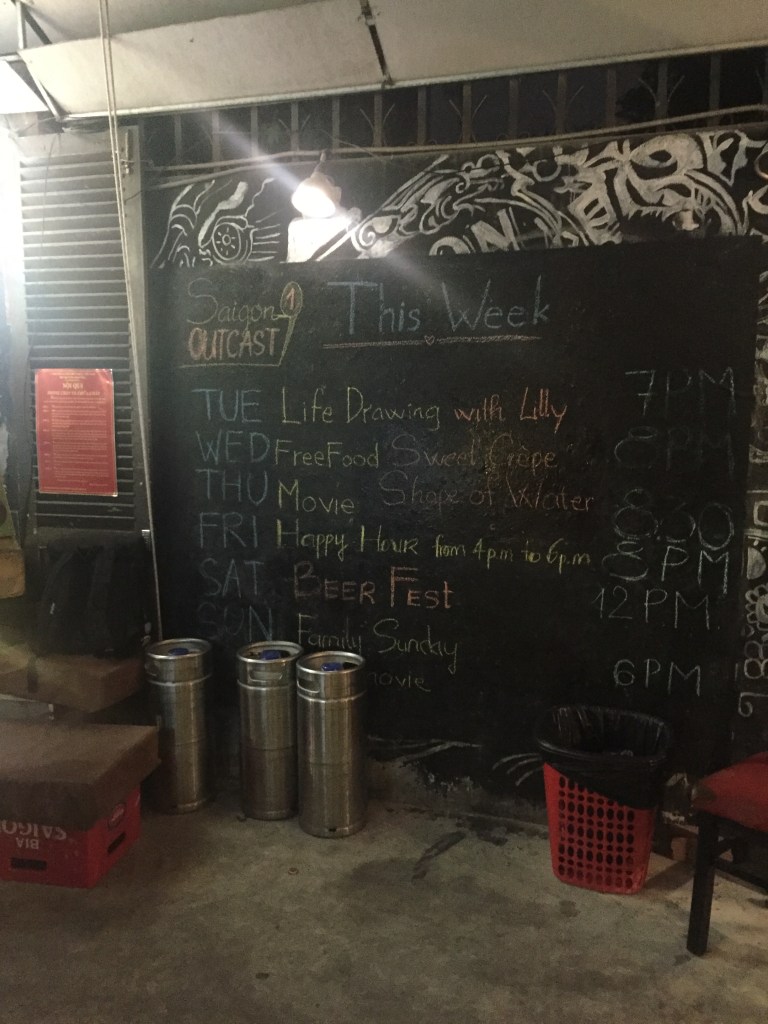 Saigon This Week
OUTCAST
TUE Life Drawing with Lilly 7PM
WED FreeFood Sweet Crepe 8PM
THU Movie Shape of Water 8:30
FRI Happy Hour from 4p.m to 6p.m 8PM
SAT BEER FEST 12PM
SUN Family Sunday
movie 6PM
NỘI QUY
BIA
SAIGO